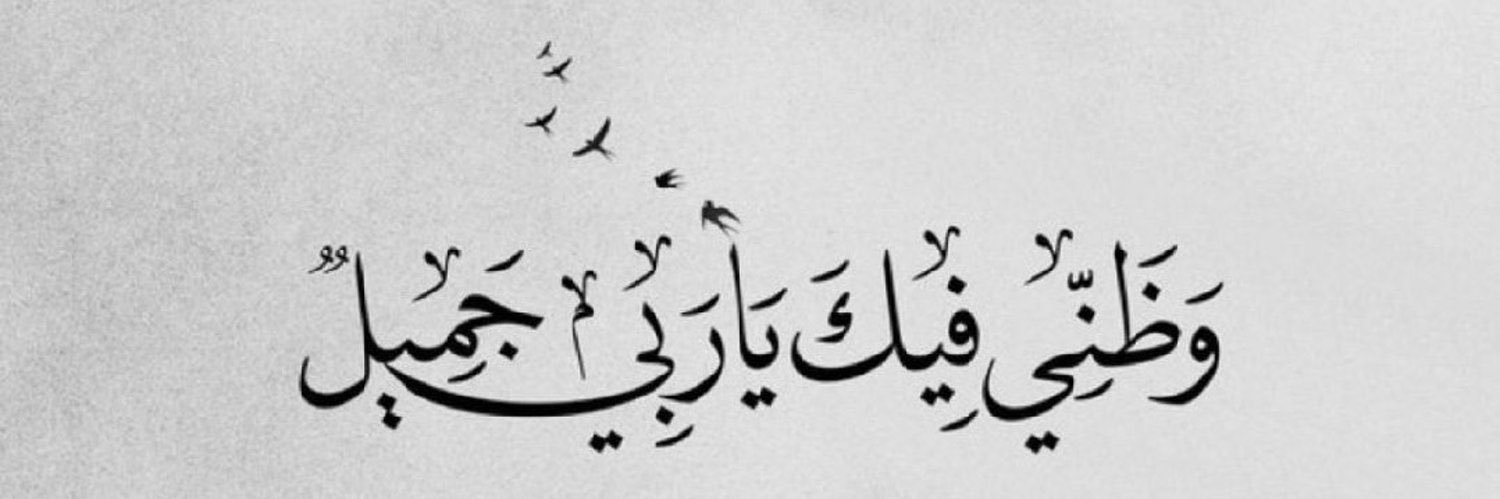 وَظَنِّي فِيكَ يَا رَبِي جَمِيلٌ